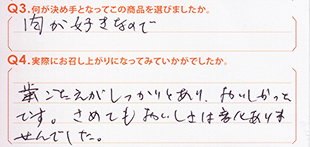 Q3.何が決め手となってこの商品を選びましたか。
肉が好きなので
Q4.実際にお召し上がりになってみていかがでしたか。
歯ごたえがしっかりとあり、おいしかった
です。さめてもおいしさは変化ありま
せんでした。